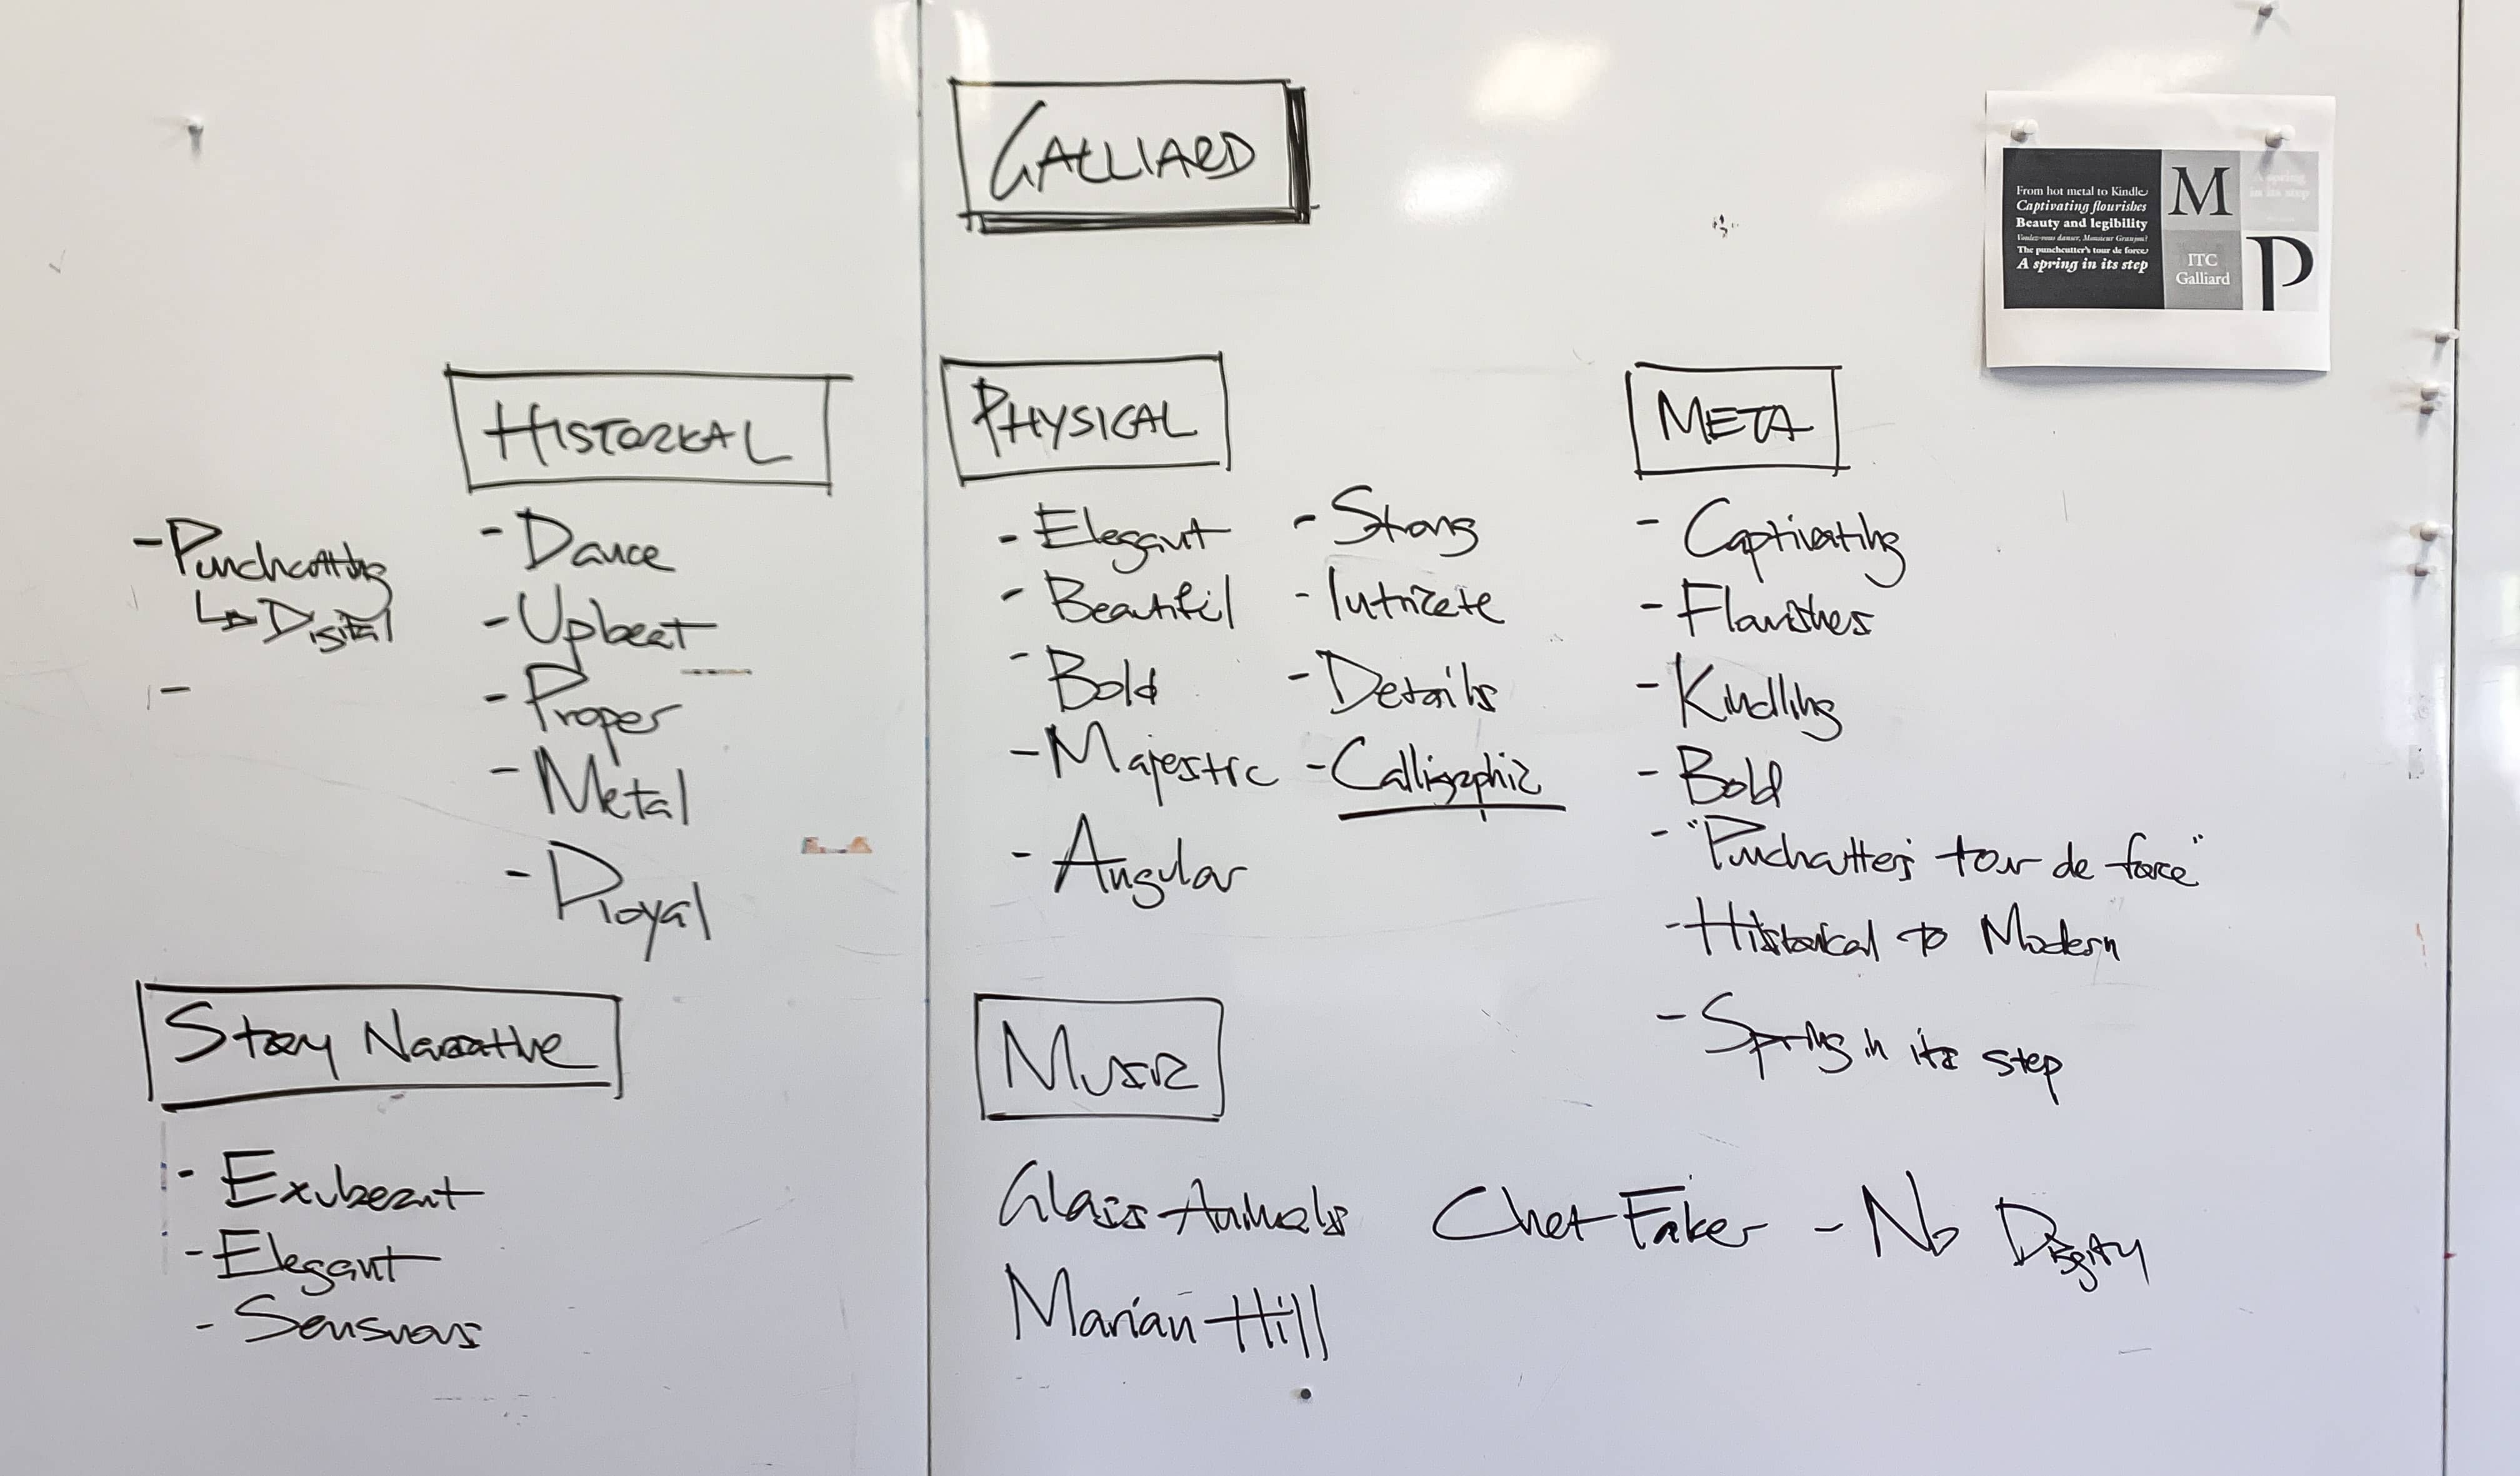 GALLIARD
From hot metal to Kindle
Captivating flourishes
Beauty and legibility
Voulez-vous danser, Monsieur Granjon?
The punchcutter's tour de force
A spring in its step
M
A spring
in its step
ITC
Galliard
P
HISTORICAL
- Punchcutting
↳ Digital
-
- Dance
- Upbeat
- Proper
- Metal
- Royal
PHYSICAL
- Elegant
- Beautiful
- Bold
- Majestic
- Angular
- Strong
- Intricate
- Details
- Calligraphic
META
- Captivating
- Flourishes
- Kindling
- Bold
- "Punchcutter's tour de force"
- Historical to Modern
- Spring in its step
Story Narrative
- Exuberant
- Elegant
- Sensuous
MUSIC
Glass Animals
Marian Hill
Chet Faker - No Diggity